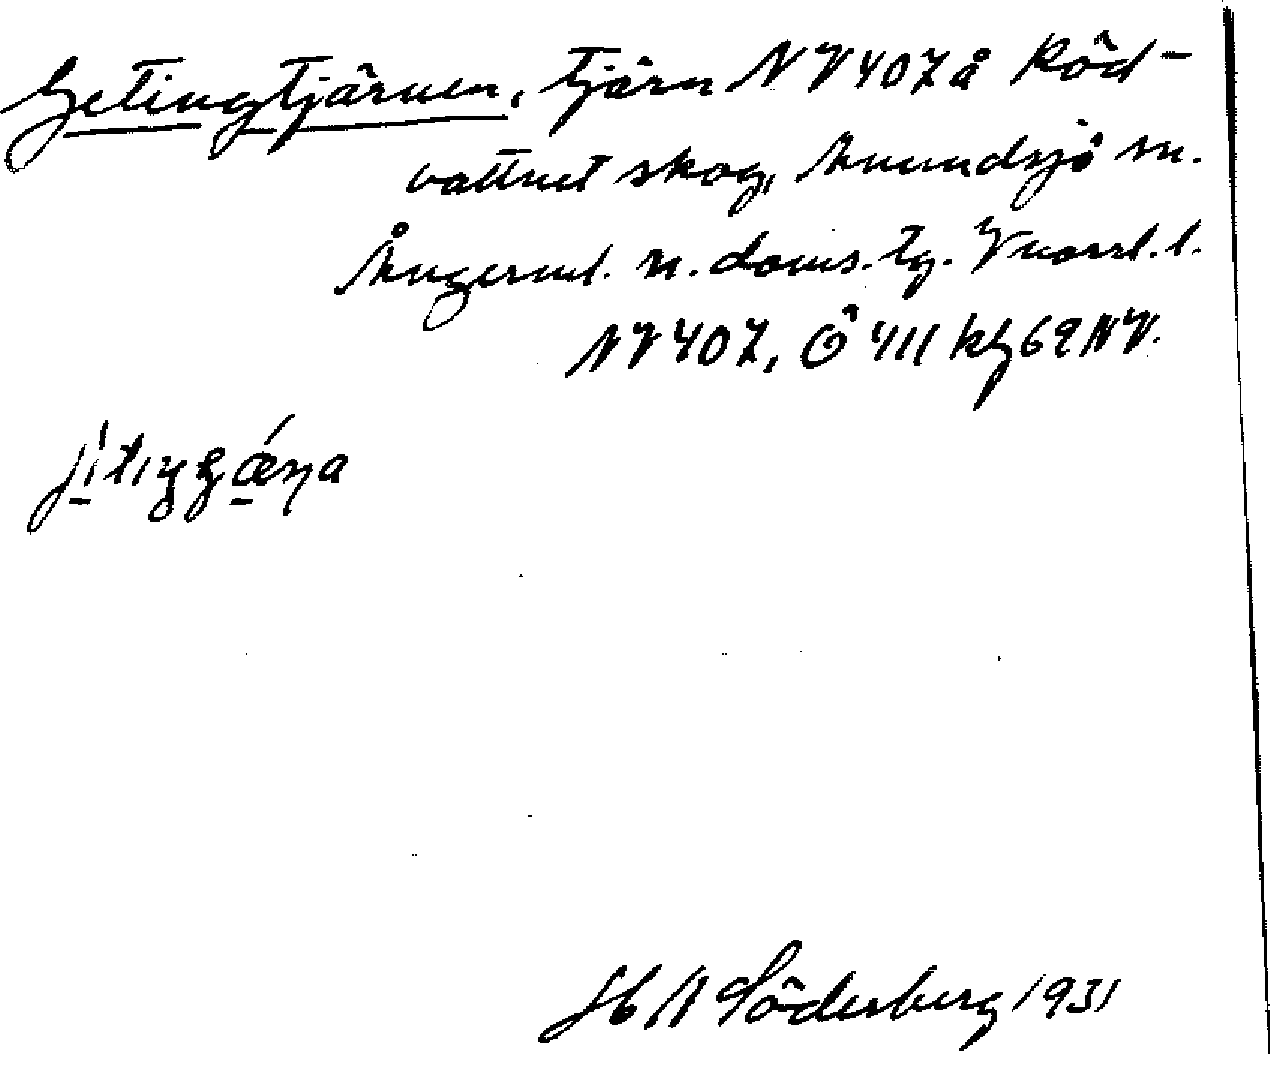 Getingtjärnen, tjärn NV 407 å Röd-
vattnet skog, Anundsjö sn.
Ångerml. n. doms. tg. Vnorrl. l.
NV 407, Ö 411 kbl 69 NV.
H N Söderberg 1931